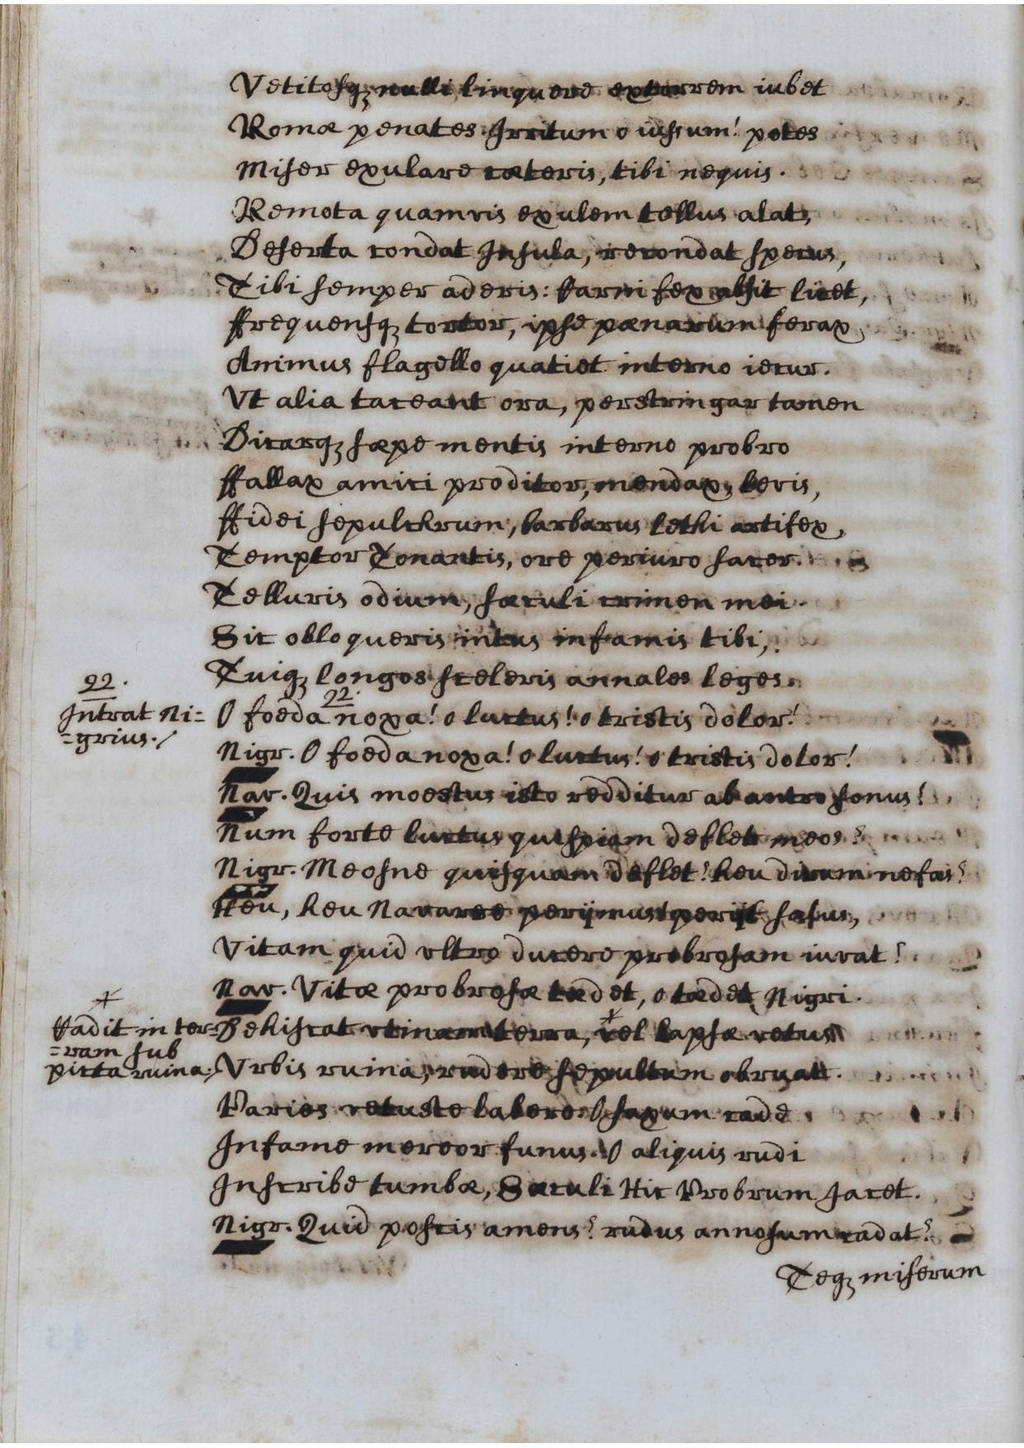 Vetitosq; nulli linquere exterrem iubet
Romæ penates. Irritum o iussum! potes
Miser exulare cæteris, tibi nequis.
Remota quamvis exulem tellus alat,
Deserta condat Insula, recondat specus,
Tibi semper aderis: Carnifex absit licet,
ffrequensq; tortor, ipse pœnarum ferax
Animus flagello quatiet interno iecur.
Vt alia taceant ora, perstringar tamen
Dicarq; sæpe mentis interno probro
ffallax amici proditor, mendax, levis,
ffidei sepulchrum, barbarus lethi artifex,
Temptor Tonantis, ore periuro sacer.
Telluris odium, sæculi crimen mei.
Sic obloqueris intus infamis tibi,
Tuiq; longos sceleris annales leges.
22.
Intrat Ni=
=grius./
22.
O foeda noxa! o luctus! o tristis dolor!
Nigr. O foeda noxa! o luctus! o tristis dolor!
Nav. Quis moestus isto redditur ab antro sonus!
Num forte luctus quispiam deflet meos?
Nigr. Meosne quisquam deflet! heu dirum nefas?
Heu, heu Navaree perijmus! perijt salus,
Vitam quid vltro ducere probrosam iuvat!
Nav. Vitæ probrosæ tædet, o tædet Nigri.
Cadit in ter=
=ram sub
picta ruina.
Dehiscat vtinam terra, vel lapsæ vetus
Vrbis ruina, rudere sepultum obruat.
Paries vetuste labere! O saxum cade
Infame mereor funus. O aliquis rudi
Inscribe tumbæ, Sæculi Hic Probrum Jacet.
Nigr. Quid poscis amens? rudus annosum cadat?
Teq; miserum